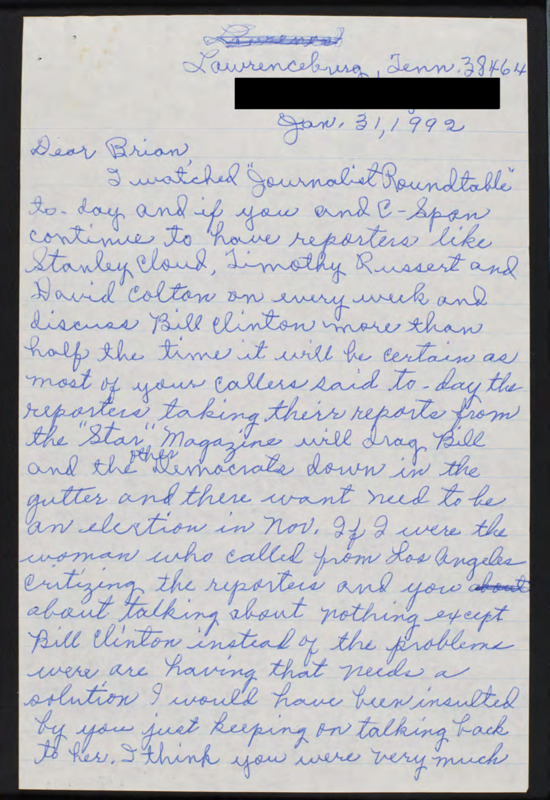 Lawrenceburg, Tenn. 38464
Jan. 31, 1992
Dear Brian,
I watched "Journalist Roundtable"
to-day and if you and C-Span
continue to have reporters like
Stanley Cloud, Timothy Russert and
David Colton on every week and
discuss Bill Clinton more than
half the time it will be certain as
most of your callers said to-day the
reporters taking theirr reports from
the "Star" Magazine will drag Bill
and the other Democrats down in the
gutter and there want need to be
an election in Nov. If I were the
woman who called from Los Angeles
critizing the reporters and you about
about talking about nothing except
Bill Clinton instead of the problems
were are having that needs a
solution I would have been insulted
by you just keeping on talking back
to her. I think you were very much